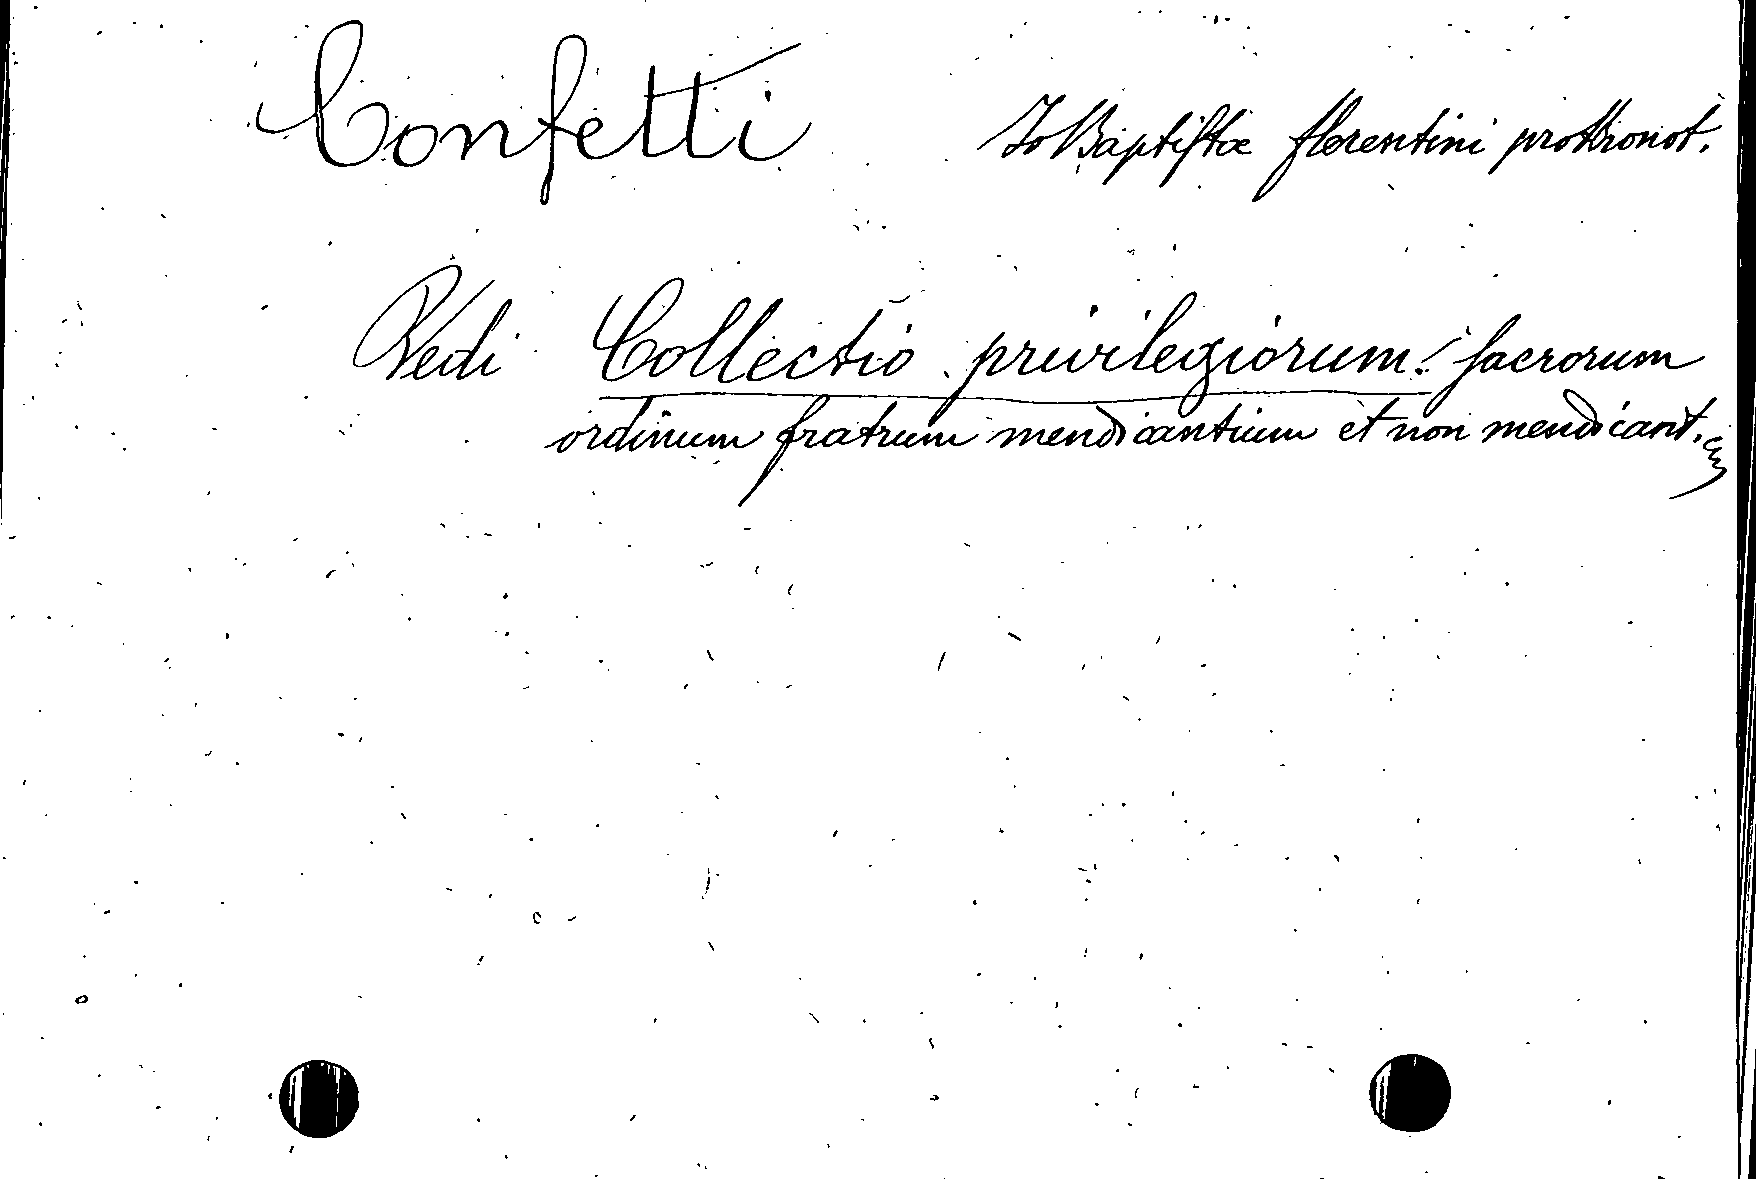 Confetti Jo Baptistæ florentini prothonot.
Vedi Collectio privilegiorum: sacrorum
ordinum fratrum mendicantium et non mendicant.